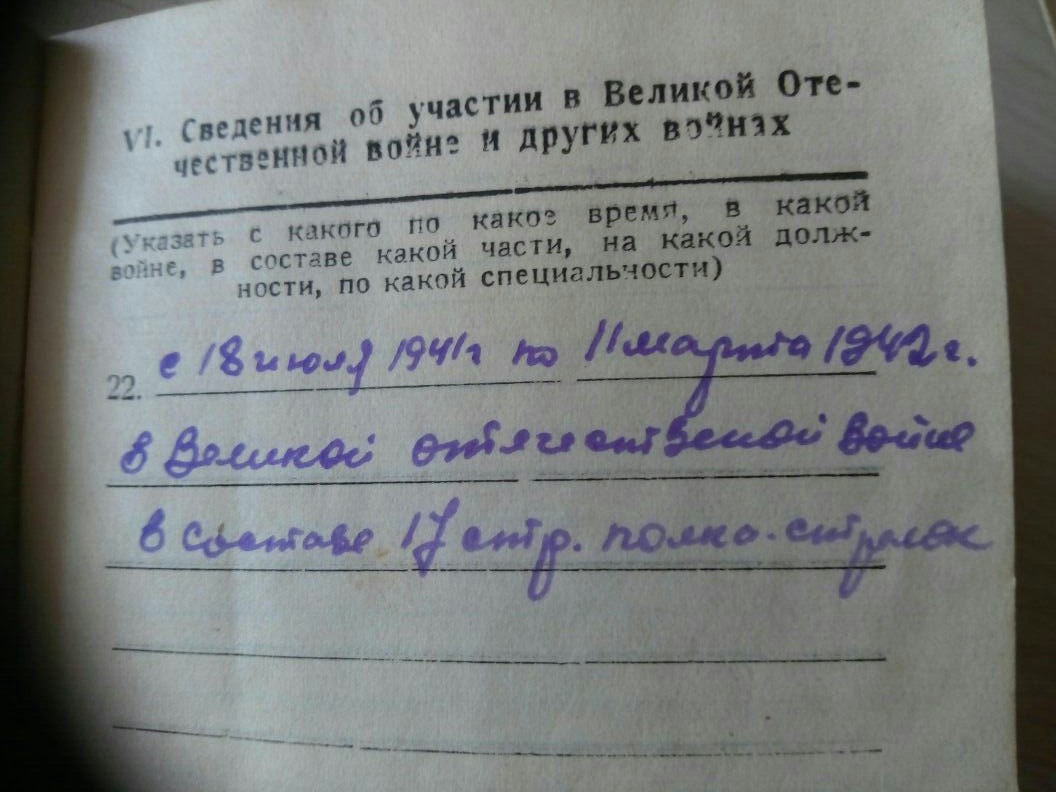 VI. Сведения об участии в Великой Оте-
чественной войне и других войнах
(Указать с какого по какое время, в какой
войне, в составе какой части, на какой долж-
ности, по какой специальности)
22. с 18 июля 1941 г по 11 марта 1942 г.
в Великой отячественой войне
в составе 17 стр. полка. стрелок